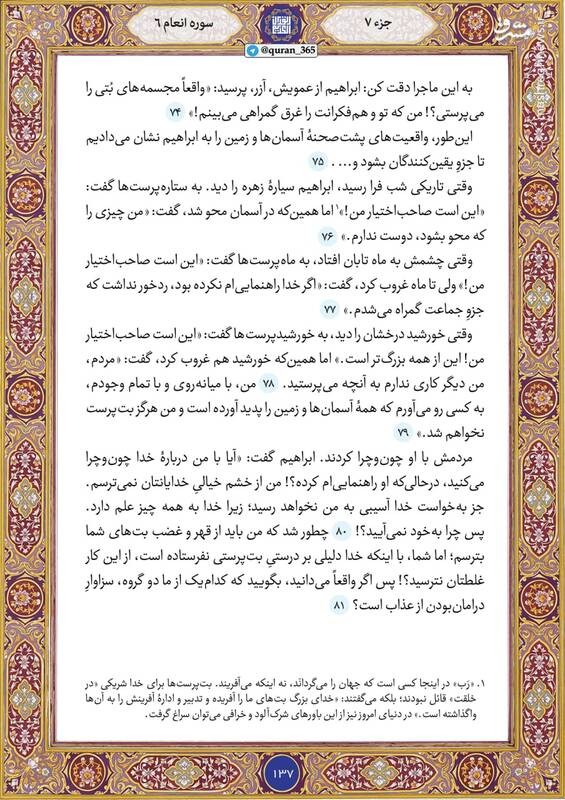 جزء ۷
سوره انعام ۶
@quran_365
به این ماجرا دقت کن: ابراهیم از عمویش، آزر، پرسید: «واقعاً مجسمه‌های بُتی را
می‌پرستی؟! من که تو و هم‌فکرانت را غرق گمراهی می‌بینم!» ۷۴
این‌طور، واقعیت‌های پشت‌صحنهٔ آسمان‌ها و زمین را به ابراهیم نشان می‌دادیم
تا جزوِ یقین‌کنندگان بشود و.... ۷۵
وقتی تاریکی شب فرا رسید، ابراهیم سیارهٔ زهره را دید. به ستاره‌پرست‌ها گفت:
«این است صاحب‌اختیار من!»۱ اما همین‌که در آسمان محو شد، گفت: «من چیزی را
که محو بشود، دوست ندارم.» ۷۶
وقتی چشمش به ماه تابان افتاد، به ماه‌پرست‌ها گفت: «این است صاحب‌اختیار
من!» ولی تا ماه غروب کرد، گفت: «اگر خدا راهنمایی‌ام نکرده بود، ردخور نداشت که
جزوِ جماعت گمراه می‌شدم.» ۷۷
وقتی خورشید درخشان را دید، به خورشیدپرست‌ها گفت: «این است صاحب‌اختیار
من! این از همه بزرگ‌تر است.» اما همین‌که خورشید هم غروب کرد، گفت: «مردم،
من دیگر کاری ندارم به آنچه می‌پرستید. ۷۸ من، با میانه‌روی و با تمام وجودم،
به کسی رو می‌آورم که همهٔ آسمان‌ها و زمین را پدید آورده است و من هرگز بت‌پرست
نخواهم شد.» ۷۹
مردمش با او چون‌وچرا کردند. ابراهیم گفت: «آیا با من دربارهٔ خدا چون‌وچرا
می‌کنید، درحالی‌که او راهنمایی‌ام کرده؟! من از خشم خیالیِ خدایانتان نمی‌ترسم.
جز به‌خواست خدا آسیبی به من نخواهد رسید؛ زیرا خدا به همه چیز علم دارد.
پس چرا به‌خود نمی‌آیید؟! ۸۰ چطور شد که من باید از قهر و غضب بت‌های شما
بترسم؛ اما شما، با اینکه خدا دلیلی بر درستیِ بت‌پرستی نفرستاده است، از این کار
غلطتان نترسید؟! پس اگر واقعاً می‌دانید، بگویید که کدام‌یک از ما دو گروه، سزاوارِ
درامان‌بودن از عذاب است؟ ۸۱
۱. «رَب» در اینجا کسی است که جهان را می‌گرداند، نه اینکه می‌آفریند. بت‌پرست‌ها برای خدا شریکی «در
خلقت» قائل نبودند؛ بلکه می‌گفتند: «خدای بزرگ بت‌های ما را آفریده و تدبیر و ادارهٔ آفرینش را به آن‌ها
واگذاشته است.» در دنیای امروز نیز از این باورهای شرک‌آلود و خرافی می‌توان سراغ گرفت.
۱۳۷